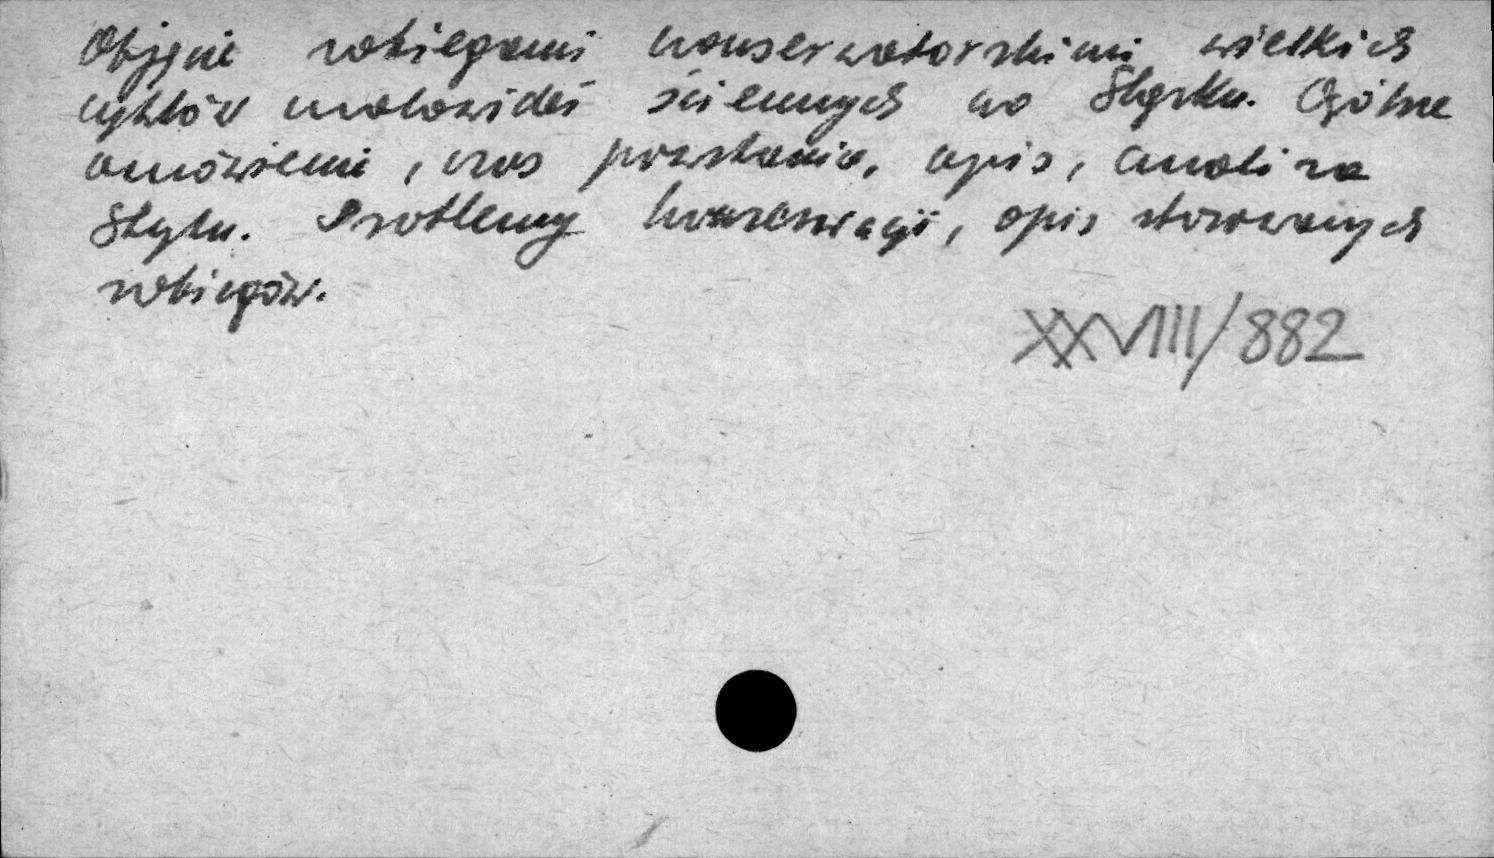 Objęcie zabiegami konserwatorskimi wielkich
cyklów malowideł ściennych na Śląsku. Ogólne
omówienie, czas powstania, opis, analiza
stylu. Problemy konserwacji, opis stosowanych
zabiegów.
XXVIII/882